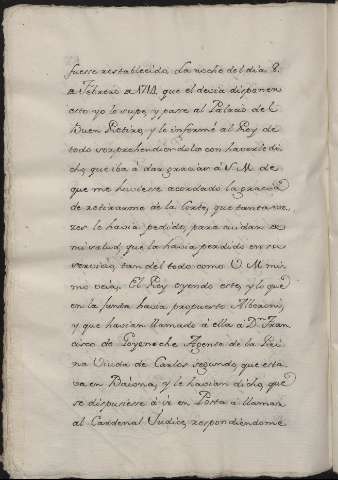 fuesse restablecido. La noche del dia 8.
de Febrero de 1714. que el devia disponer
esto yo lo supe, y passe al Palacio del
Buen Retiro, y le informé al Rey de
todo sorprehendiendolo con haverle di-
cho, que iba á dar gracias á S. M. de
que me huviesse acordado la gracia
de retirarme de la Corte, que tantas ve-
zes le havia pedido, para cuidar de
mi salud, que la havia perdido en su
servicio, tan del todo como V. M. mis-
mo veia. El Rey oyendo esto, y lo que
en la Junta havia propuesto Alberoni,
y que havian llamado á ella a Dn. Fran-
cisco de Goyeneche Agente de la Rei-
na Viuda de Carlos segundo, que esta-
va en Baiona, y le havian dicho, que
se dispusiesse á ir en Posta á llamar
al Cardenal Judice, respondiendome